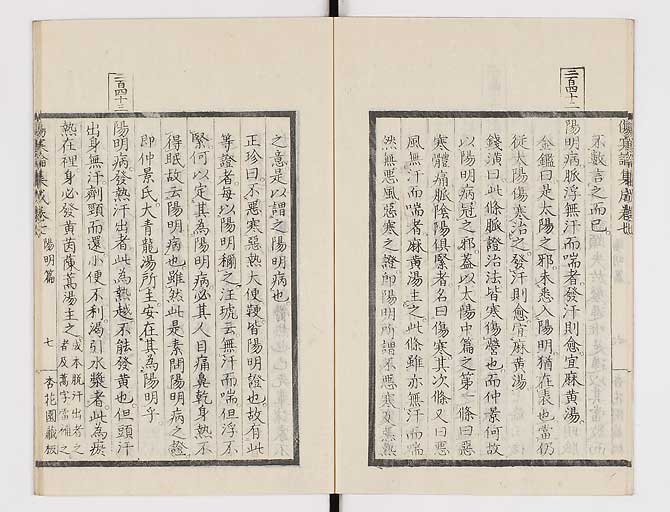 二百四十二
傷寒論集成卷七
不數言之而已
陽明病脈浮無汗而喘者發汗則愈宜麻黃湯
金鑑曰是太陽之邪未悉入陽明猶在表也當仍
從太陽傷寒治之發汗則愈宜麻黃湯
錢潢曰此條脈證治法皆寒傷營也而仲景何故
以陽明病冠之邪蓋以太陽中篇之第一條曰惡
寒體痛脈陰陽俱緊者名曰傷寒其次條又曰惡
風無汗而喘者麻黃湯主之此條雖亦無汗而喘
然無惡風惡寒之證即陽明所謂不惡寒反惡熱
二百四十三
之意是以謂之陽明病也
正珍曰不惡寒惡熱大便鞕皆陽明證也故有此
等證者每以陽明稱之汪琥云無汗而喘但浮不
緊何以定其為陽明病必其人目痛鼻乾身熱不
得眠故云陽明病也雖然此是素問陽明病之證
即仲景氏大青龍湯所主安在其為陽明乎
陽明病發熱汗出者此為熱越不能發黃也但頭汗
出身無汗劑頸而還小便不利渴引水漿者此為瘀
熱在裡身必發黃茵蔯蒿湯主之 或本脫汗出者之
者及蒿字當補之
傷寒論集成卷七 陽明篇 七 杏花園藏板